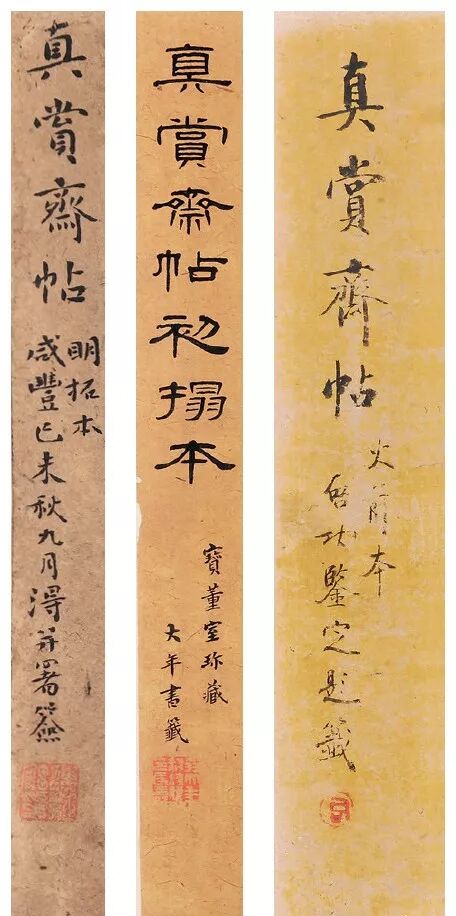 真賞齋帖
明拓本
咸豐己未秋九月淂并署簽
真賞齋帖初搨本
寶董室珍藏
大年書籤
真賞齋帖
火前本
啓功鑒定題籤